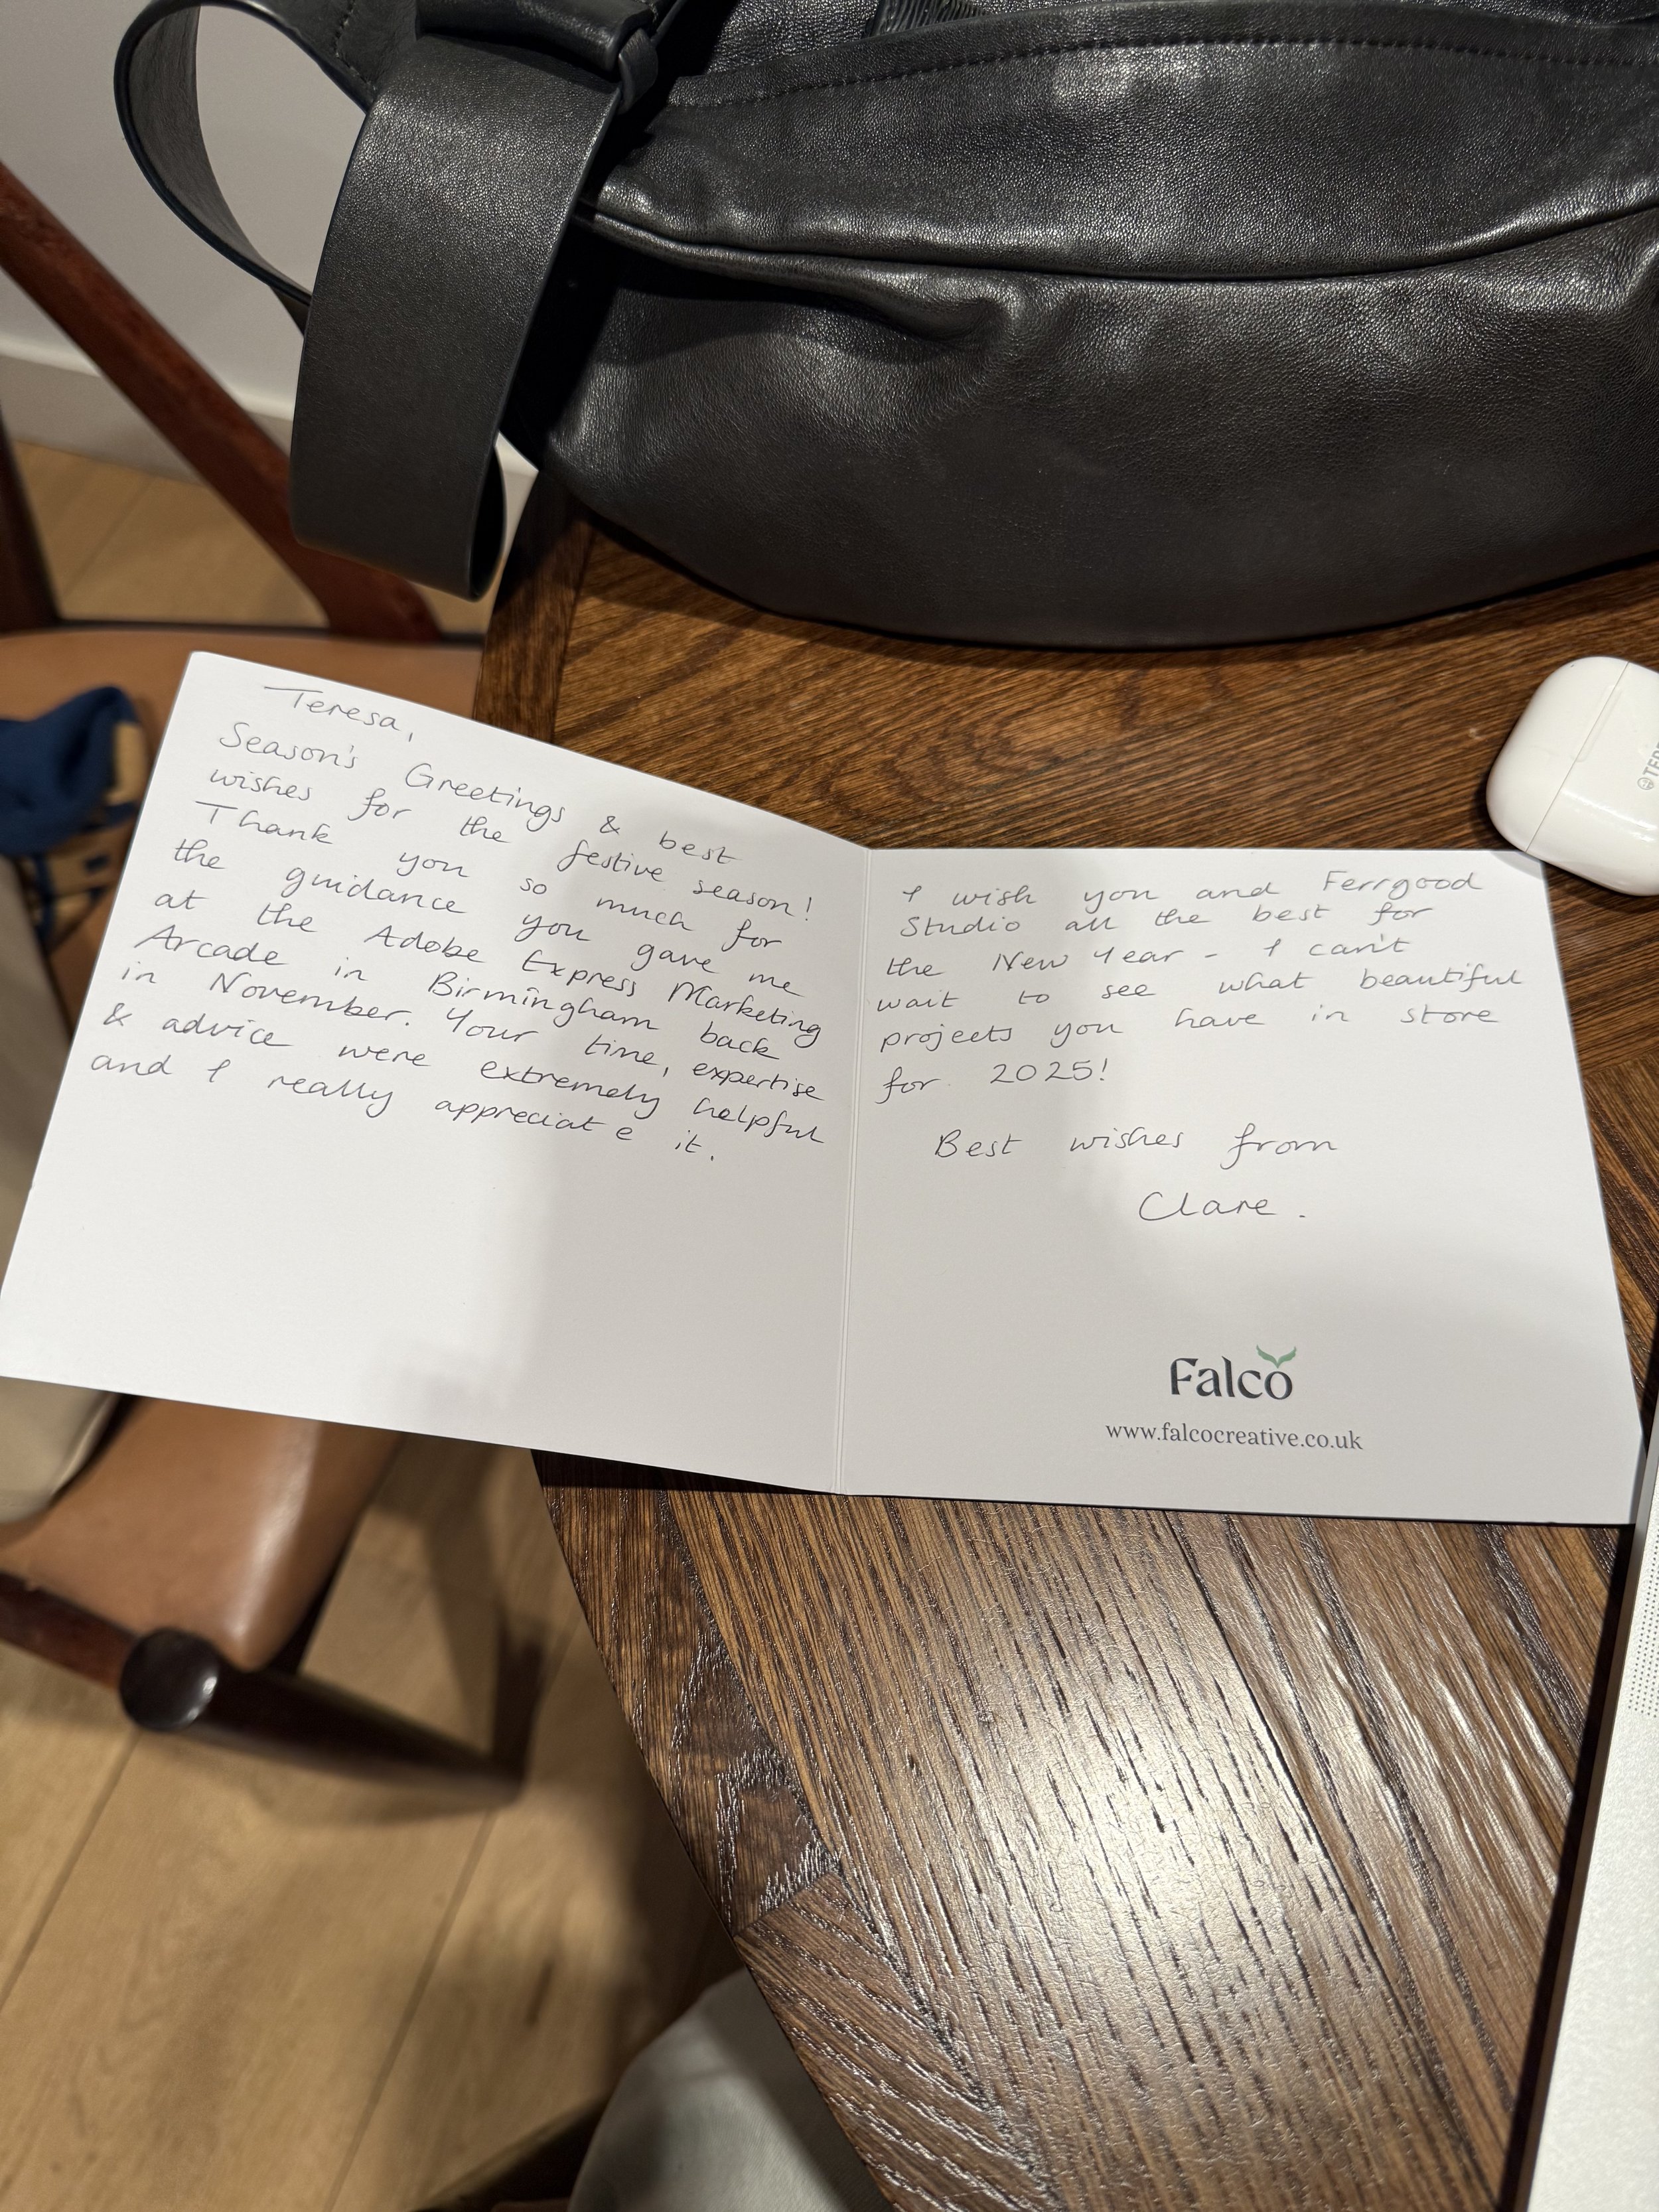 Teresa,
Season's Greetings & best
wishes for the festive season!
Thank you so much for
the guidance you gave me
at the Adobe Express Marketing
Arcade in Birmingham back
in November. Your time, expertise
& advice were extremely helpful
and I really appreciate it.
I wish you and Ferrgood
Studio all the best for
the New Year - I can't
wait to see what beautiful
projects you have in store
for 2025!
Best wishes from
Clare.
Falco
www.falcocreative.co.uk